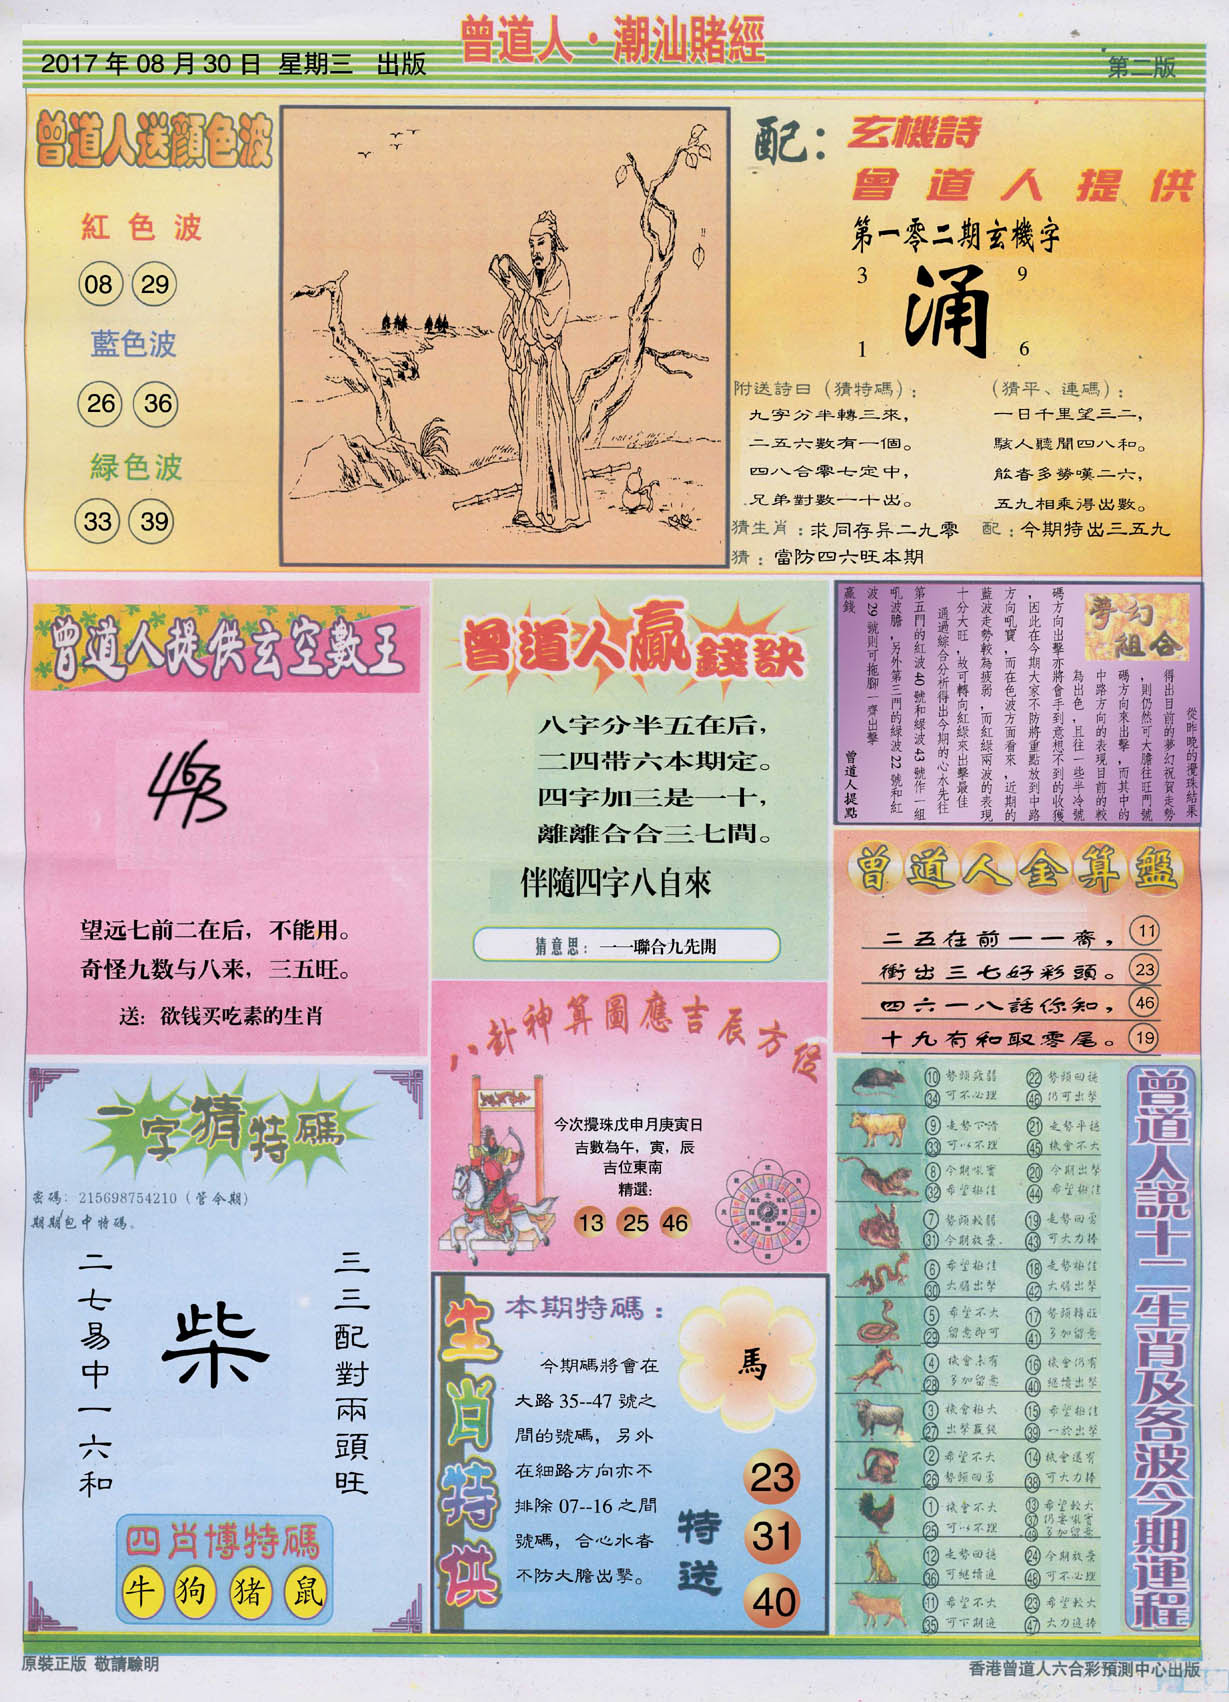 曾道人·潮汕賭經
2017年08月30日 星期三 出版
第二版
曾道人送顏色波
紅色波
08 29
藍色波
26 36
緑色波
33 39
配：玄機詩
曾道人提供
第一零二期玄機字
3 9
涌
1 6
附送詩曰（猜特碼）：
九字分半轉三來，
二五六數有一個。
四八合零七定中，
兄弟對數一十出。
（猜平、連碼）：
一日千里望三二，
駭人聽聞四八和。
能者多勞嘆二六，
五九相乘得出數。
猜生肖：求同存异二九零
配：今期特出三五九
猜：當防四六旺本期
曾道人提供玄空數王
463
望远七前二在后，不能用。
奇怪九数与八来，三五旺。
送：欲钱买吃素的生肖
曾道人贏錢訣
八字分半五在后，
二四带六本期定。
四字加三是一十，
離離合合三七間。
伴隨四字八自來
猜意思：一一聯合九先開
夢幻組合
從昨晚的攪珠結果
得出目前的夢幻祝賀走勢
，則仍然可大膽往旺門號
碼方向來出擊，而其中的
中路方向的表現目前的較
為出色，且往一些半冷號
碼方向出擊亦將會手到意想不到的收獲
，因此在今期大家不防將重點放到中路
方向吼寶，而在色波方面看來，近期的
藍波走勢較為疲弱，而紅綠兩波的表現
十分大旺，故可轉向紅綠來出擊最佳
通過綜合分析得出今期的心水先往
第五門的紅波40號和綠波43號作一組
吼波膽，另外第三門的綠波22號和紅
波29號則可拖腳一齊出擊
贏錢
曾道人提點
曾道人金算盤
二五在前一一齊， 11
衝出三七好彩頭。 23
四六一八話你知， 46
十九有和取零尾。 19
八卦神算圖應吉辰方位
今次攪珠戊申月庚寅日
吉數為午，寅，辰
吉位東南
精選：
13 25 46
一字猜特碼
密碼：215698754210（管今期）
期期包中特碼。
三三配對兩頭旺
柴
二七易中一六和
四肖博特碼
牛 狗 猪 鼠
生肖特供
本期特碼：
馬
今期碼將會在
大路35--47號之
間的號碼，另外
在細路方向亦不
排除07--16之間
號碼，合心水者
不防大膽出擊。
特送
23
31
40
曾道人說十二生肖及各波今期運程
10 34 勢頭疲弱 可不必理 22 46 勢頭回穩 仍可出擊
9 33 走勢下滑 可以不理 21 45 走勢平穩 機會不大
8 32 今期吼寶 希望極佳 20 44 今期出擊 希望極佳
7 31 勢頭較弱 今期放棄. 19 43 走勢回勇 可大力捧
6 30 希望極佳 大膽出擊 18 42 走勢極佳 大膽出擊
5 29 希望不大 留意即可 17 41 勢頭轉旺 多加留意
4 28 機會未有 多加留意 16 40 機會仍有 繼續出擊
3 27 機會極大 出擊贏錢 15 39 希望極佳 一於出擊
2 26 希望不大 勢頭回勇 14 38 機會還有 可大力捧
1 25 機會不大 可以不理 13 37 49 希望較大 仍要吼寶 多加留意
12 36 走勢回穩 可繼續追 24 48 今期放棄 可不必理
11 35 希望不大 可下期追 23 47 希望較大 大力追捧
原裝正版 敬請驗明
香港曾道人六合彩預測中心出版